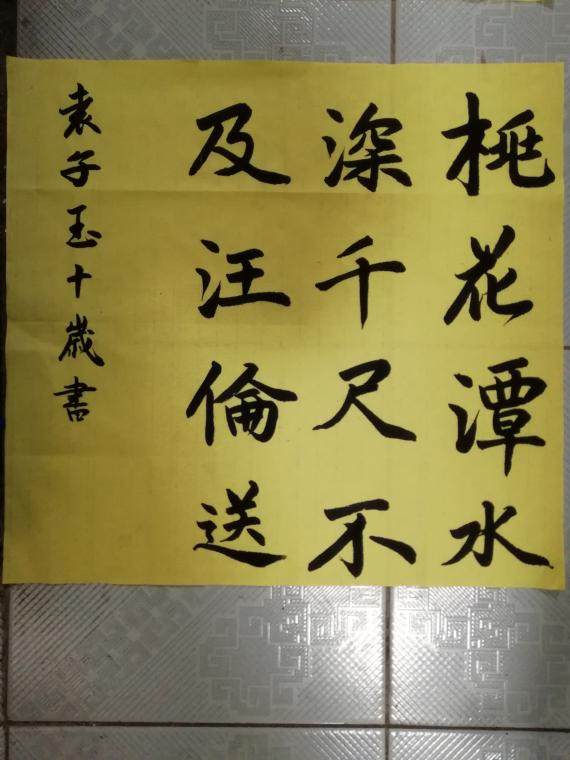 桃花潭水
深千尺不
及汪倫送
袁子玉十歲書